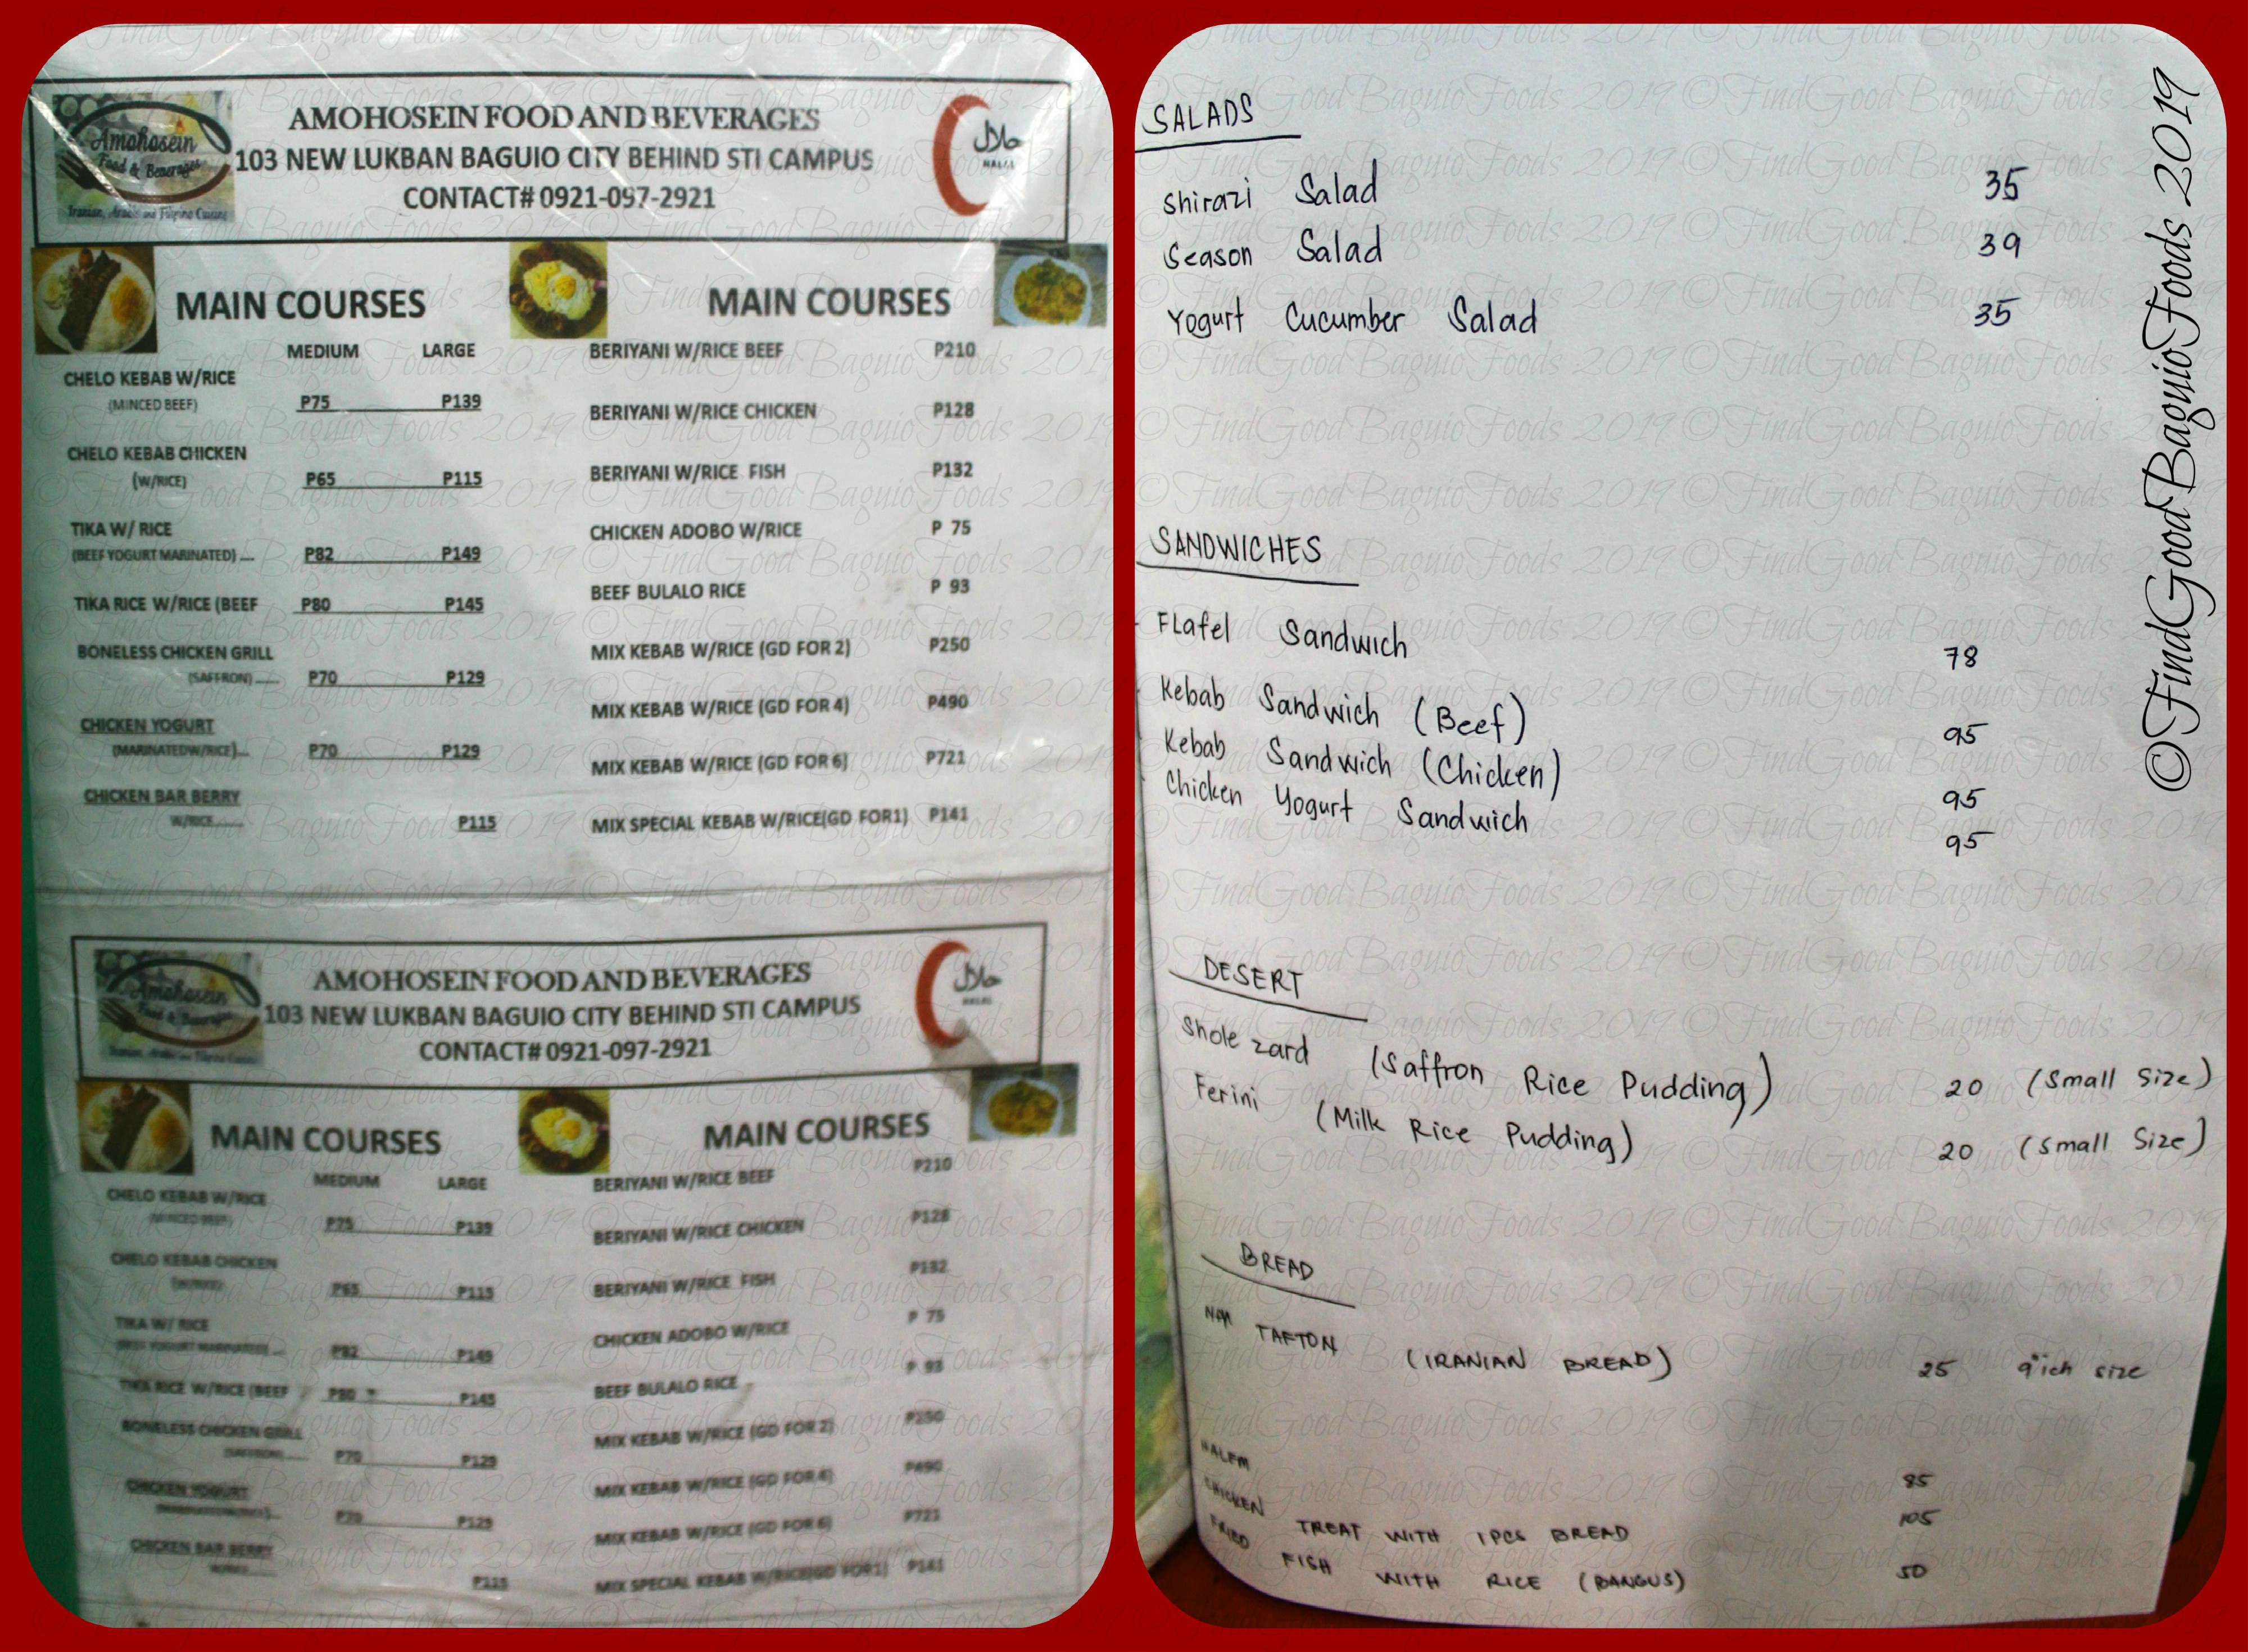 Amohosein
Food & Beverages
Iranian, Arabic and Filipino Cuisine
AMOHOSEIN FOOD AND BEVERAGES
103 NEW LUKBAN BAGUIO CITY BEHIND STI CAMPUS
CONTACT# 0921-097-2921
حلال
HALAL
MAIN COURSES
MEDIUM LARGE
CHELO KEBAB W/RICE
(MINCED BEEF) P75 P139
CHELO KEBAB CHICKEN
(W/RICE) P65 P115
TIKA W/ RICE
(BEEF YOGURT MARINATED).... P82 P149
TIKA RICE W/RICE (BEEF P80 P145
BONELESS CHICKEN GRILL
(SAFFRON)...... P70 P129
CHICKEN YOGURT
(MARINATEDW/RICE).... P70 P129
CHICKEN BAR BERRY
W/RICE........ P115
MAIN COURSES
BERIYANI W/RICE BEEF P210
BERIYANI W/RICE CHICKEN P128
BERIYANI W/RICE FISH P132
CHICKEN ADOBO W/RICE P 75
BEEF BULALO RICE P 93
MIX KEBAB W/RICE (GD FOR 2) P250
MIX KEBAB W/RICE (GD FOR 4) P490
MIX KEBAB W/RICE (GD FOR 6) P721
MIX SPECIAL KEBAB W/RICE(GD FOR1) P141
Amohosein
Food & Beverages
Iranian, Arabic and Filipino Cuisine
AMOHOSEIN FOOD AND BEVERAGES
103 NEW LUKBAN BAGUIO CITY BEHIND STI CAMPUS
CONTACT# 0921-097-2921
حلال
HALAL
MAIN COURSES
MEDIUM LARGE
CHELO KEBAB W/RICE
(MINCED BEEF) P75 P139
CHELO KEBAB CHICKEN
(W/RICE) P65 P115
TIKA W/ RICE
(BEEF YOGURT MARINATED).... P82 P149
TIKA RICE W/RICE (BEEF P80 P145
BONELESS CHICKEN GRILL
(SAFFRON)...... P70 P129
CHICKEN YOGURT
(MARINATEDW/RICE).... P70 P129
CHICKEN BAR BERRY
W/RICE........ P115
MAIN COURSES
BERIYANI W/RICE BEEF P210
BERIYANI W/RICE CHICKEN P128
BERIYANI W/RICE FISH P132
CHICKEN ADOBO W/RICE P 75
BEEF BULALO RICE P 93
MIX KEBAB W/RICE (GD FOR 2) P250
MIX KEBAB W/RICE (GD FOR 4) P490
MIX KEBAB W/RICE (GD FOR 6) P721
MIX SPECIAL KEBAB W/RICE(GD FOR1) P141
SALADS
Shirazi Salad 35
Season Salad 39
Yogurt Cucumber Salad 35
SANDWICHES
FLafel Sandwich 78
Kebab Sandwich (Beef) 95
Kebab Sandwich (Chicken) 95
Chicken Yogurt Sandwich 95
DESERT
Shole zard (Saffron Rice Pudding) 20 (Small Size)
Ferini (Milk Rice Pudding) 20 (Small Size)
BREAD
NAN TAFTON (IRANIAN BREAD) 25 9"ich size
HALEM 85
CHICKEN TREAT WITH 1PCS BREAD 105
FRIED FISH WITH RICE (BANGUS) 50
©FindGoodBaguioFoods 2019